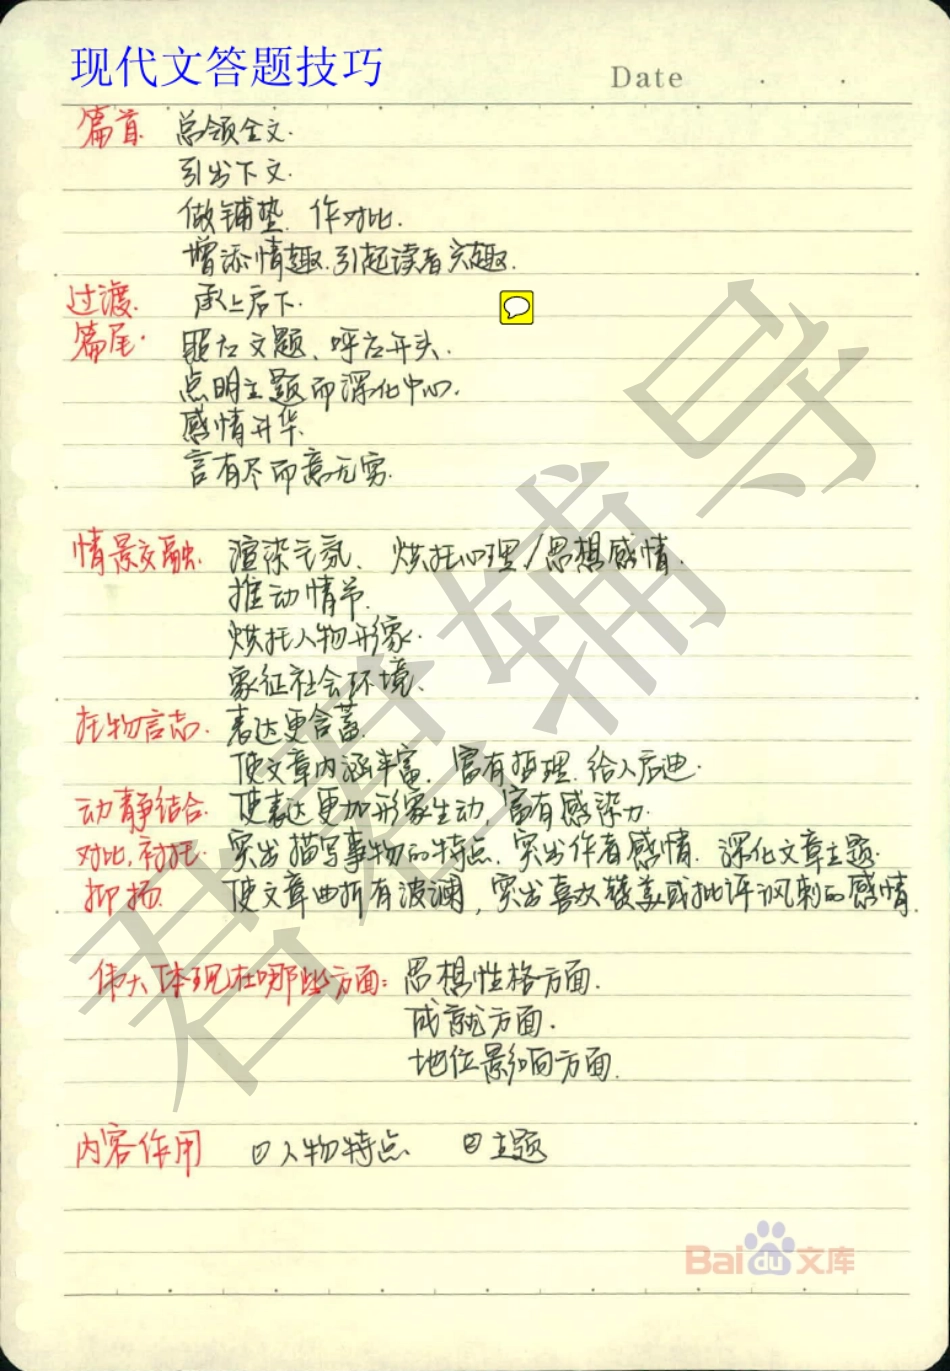 现代文答题技巧
Date
篇首. 总领全文.
引出下文.
做铺垫. 作对比.
增添情趣.引起读者兴趣.
过渡. 承上启下.
篇尾. 照应文题、呼应开头.
点明主题而深化中心.
感情升华.
言有尽而意无穷.
情景交融. 渲染气氛、 烘托心理/思想感情.
推动情节.
烘托人物形象.
象征社会环境.
托物言志. 表达更含蓄.
使文章内涵丰富, 富有哲理.给人启迪.
动静结合. 使表达更加形象生动, 富有感染力.
对比,衬托. 突出描写事物的特点, 突出作者感情. 深化文章主题.
抑扬. 使文章曲折有波澜, 突出喜欢赞美或批评讽刺的感情.
伟大体现在哪些方面: 思想性格方面.
成就方面.
地位影响方面.
内容作用 ①人物特点 ②主题
君君辅导
Baidu文库